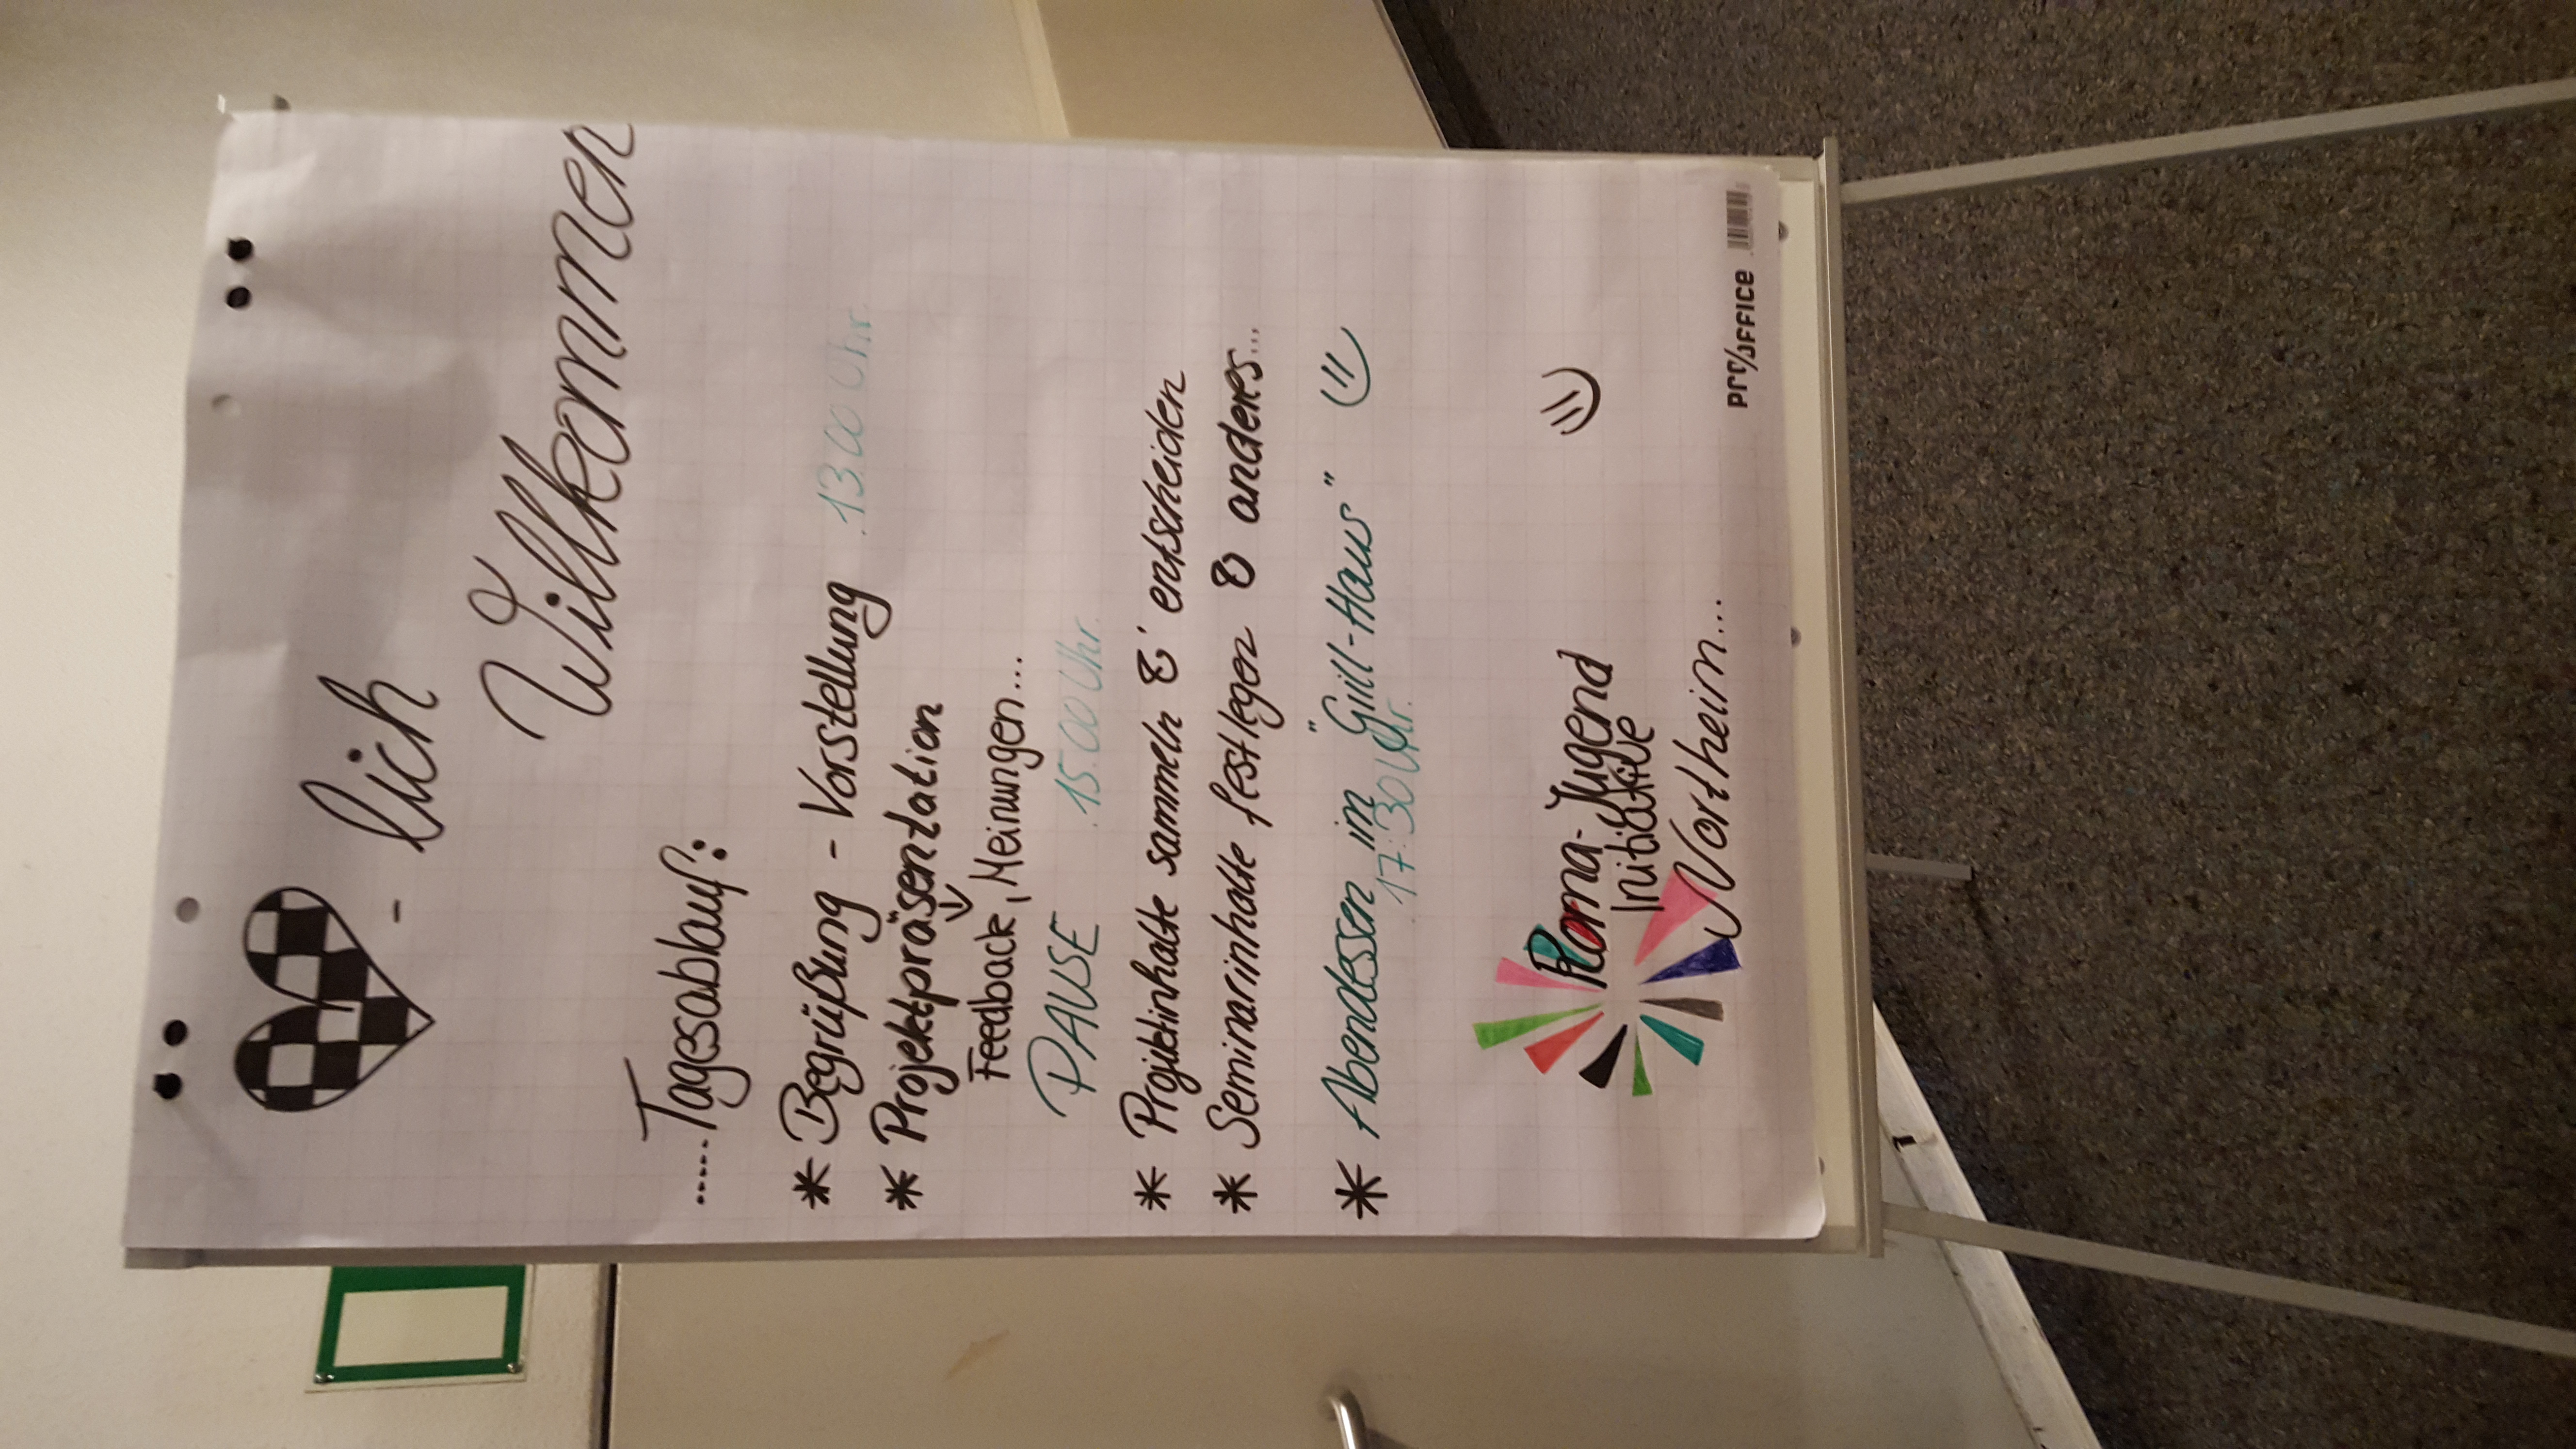 - lich
Willkommen
.....Tagesablauf:
* Begrüßung - Vorstellung .13.00 Uhr.
* Projektpräsentation
↓
Feedback, Meinungen...
PAUSE .15.00 Uhr.
* Projektinhalte sammeln & entscheiden
* Seminarinhalte festlegen & anderes...
* Abendessen im "Grill-Haus"
.17:30 Uhr.
Roma-Jugend
Initiative
Northeim...
pro/office